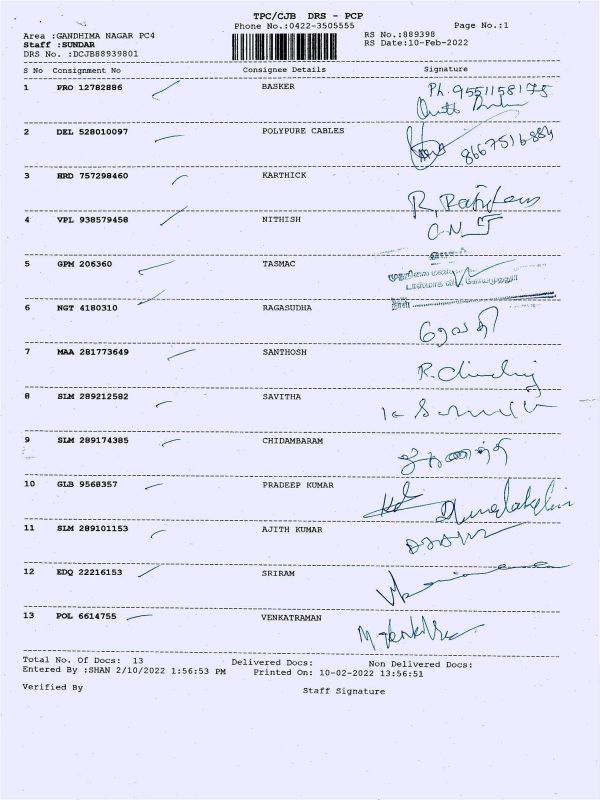 TPC/CJB DRS - PCP
Phone No.:0422-3505555 Page No.:1
Area :GANDHIMA NAGAR PC4 RS No.:889398
Staff :SUNDAR RS Date:10-Feb-2022
DRS No. :DCJB88939801
S No Consignment No Consignee Details Signature
1 PRO 12782886 BASKER Ph. 9551158175
2 DEL 528010097 POLYPURE CABLES 8667516884
3 HRD 757298460 KARTHICK
4 VPL 938579458 NITHISH
5 GPM 206360 TASMAC
6 NGT 4180310 RAGASUDHA
7 MAA 281773649 SANTHOSH
8 SLM 289212582 SAVITHA
9 SLM 289174385 CHIDAMBARAM
10 GLB 9568357 PRADEEP KUMAR
11 SLM 289101153 AJITH KUMAR
12 EDQ 22216153 SRIRAM
13 POL 6614755 VENKATRAMAN
Total No. Of Docs: 13 Delivered Docs: Non Delivered Docs:
Entered By :SHAN 2/10/2022 1:56:53 PM Printed On: 10-02-2022 13:56:51
Verified By Staff Signature